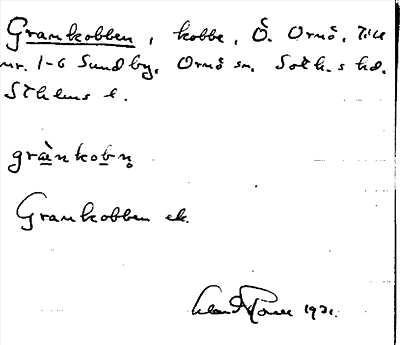 Grankobben, kobbe, Ö. Ornö. Till
nr. 1-6 Sundby, Ornö sn. Soth.s hd.
Sthlms l.
grànkobn̥
Grankobben ek.
1931.